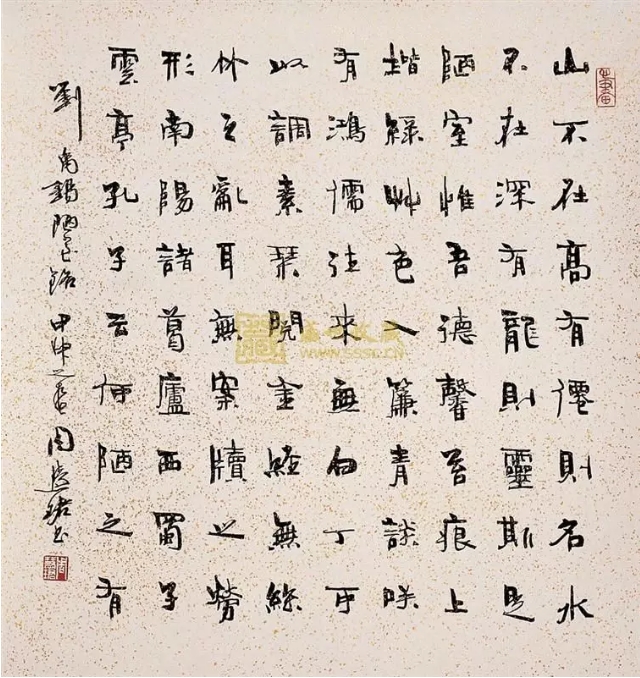 山不在高有僊則名水
不在深有龍則靈斯是
陋室惟吾德馨苔痕上
堦綠艸色入簾青談咲
有鴻儒往來無白丁可
以調素琹閱金經無絲
竹之亂耳無案牘之勞
形南陽諸葛廬西蜀子
雲亭孔子云何陋之有
劉禹錫陋室銘 甲申之春 周書
WWW.SSSC.CN